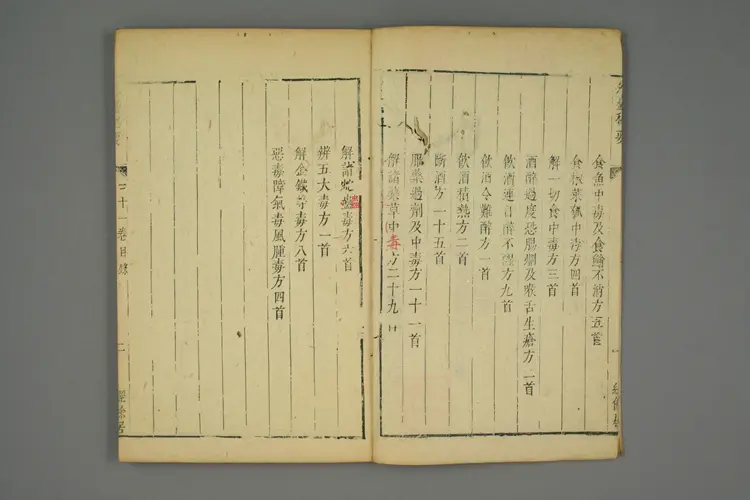 外臺秘要
一
經餘居
食魚中毒及食鱠不消方五首
食椒菜瓠中毒方四首
解一切食中毒方三首
酒醉過度恐腸爛及喉舌生瘡方二首
飲酒連日醉不醒方九首
飲酒令難醉方一首
飲酒積熱方二首
斷酒方一十五首
服藥過劑及中毒方一十一首
解諸藥草中毒方二十九首
解諸蛇蟲毒方六首
辨五大毒方一首
解金鐵等毒方八首
惡毒瘴氣毒風腫毒方四首
三十一卷目錄
二
經餘居